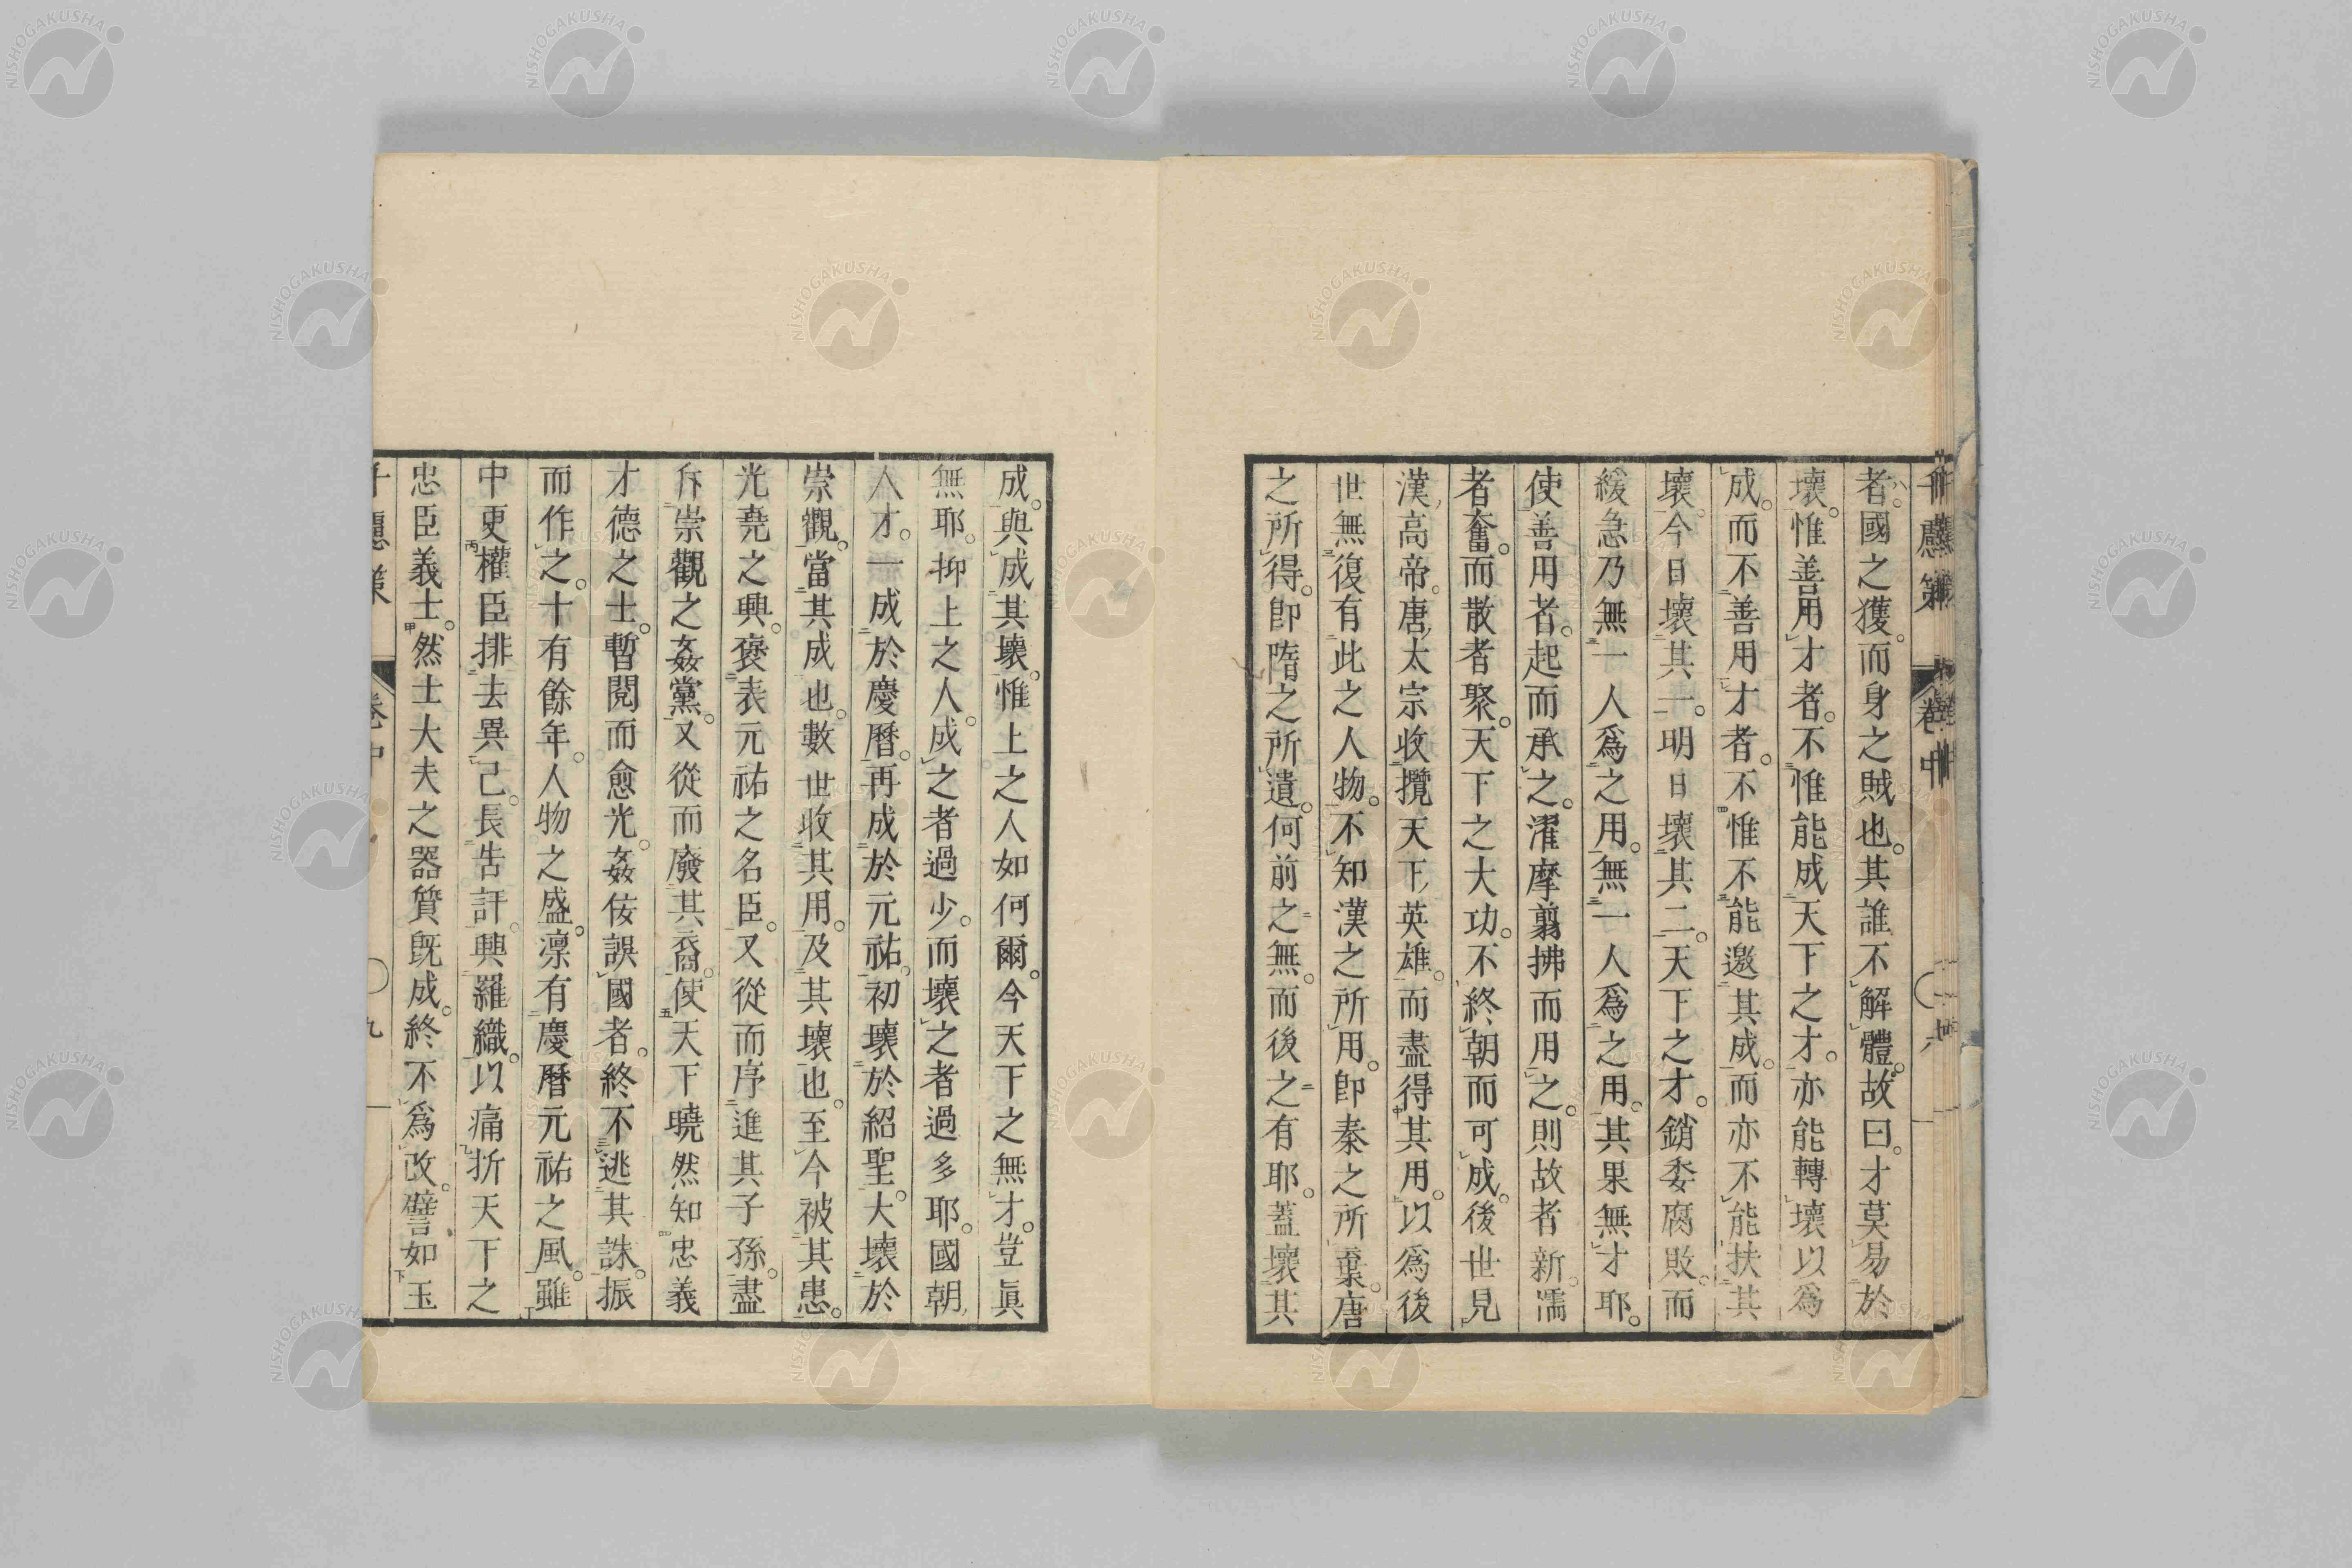 千慮策 卷中
者。國之獲。而身之賊也。其誰不解體。故曰。才莫易於
壞。惟善用才者。不惟能成天下之才。亦能轉壞以爲
成。而不善用才者。不惟不能邀其成。而亦不能扶其
壞。今日壞其一。明日壞其二。天下之才。銷委腐敗。而
緩急乃無一人爲之用。無一人爲之用。其果無才耶。
使善用者。起而承之。濯摩翦拂而用之。則故者新。濡
者奮。而散者聚。天下之大功。不終朝而可成。後世見
漢高帝。唐太宗收攬天下英雄。而盡得其用。以爲後
世無復有此之人物。不知漢之所用。卽秦之所棄。唐
之所得。卽隋之所遺。何前之無。而後之有耶。蓋壞其
成。與成其壞。惟上之人如何爾。今天下之無才。豈眞
無耶。抑上之人。成之者過少。而壞之者過多耶。國朝
人才。一成於慶曆。再成於元祐。初壞於紹聖。大壞於
崇觀。當其成也。數世收其用。及其壞也。至今被其患。
光堯之興。襃表元祐之名臣。又從而序進其子孫。盡
斥崇觀之姦黨。又從而廢其裔。使天下曉然知忠義
才德之士。暫閼而愈光。姦佞誤國者。終不逃其誅。振
而作之。十有餘年。人物之盛。凛有慶曆元祐之風。雖
中更權臣排去異己。長告訐。興羅織。以痛折天下之
忠臣義士。然士大夫之器質旣成。終不爲改。譬如玉
千慮策 卷中 九
NISHOGAKUSHA